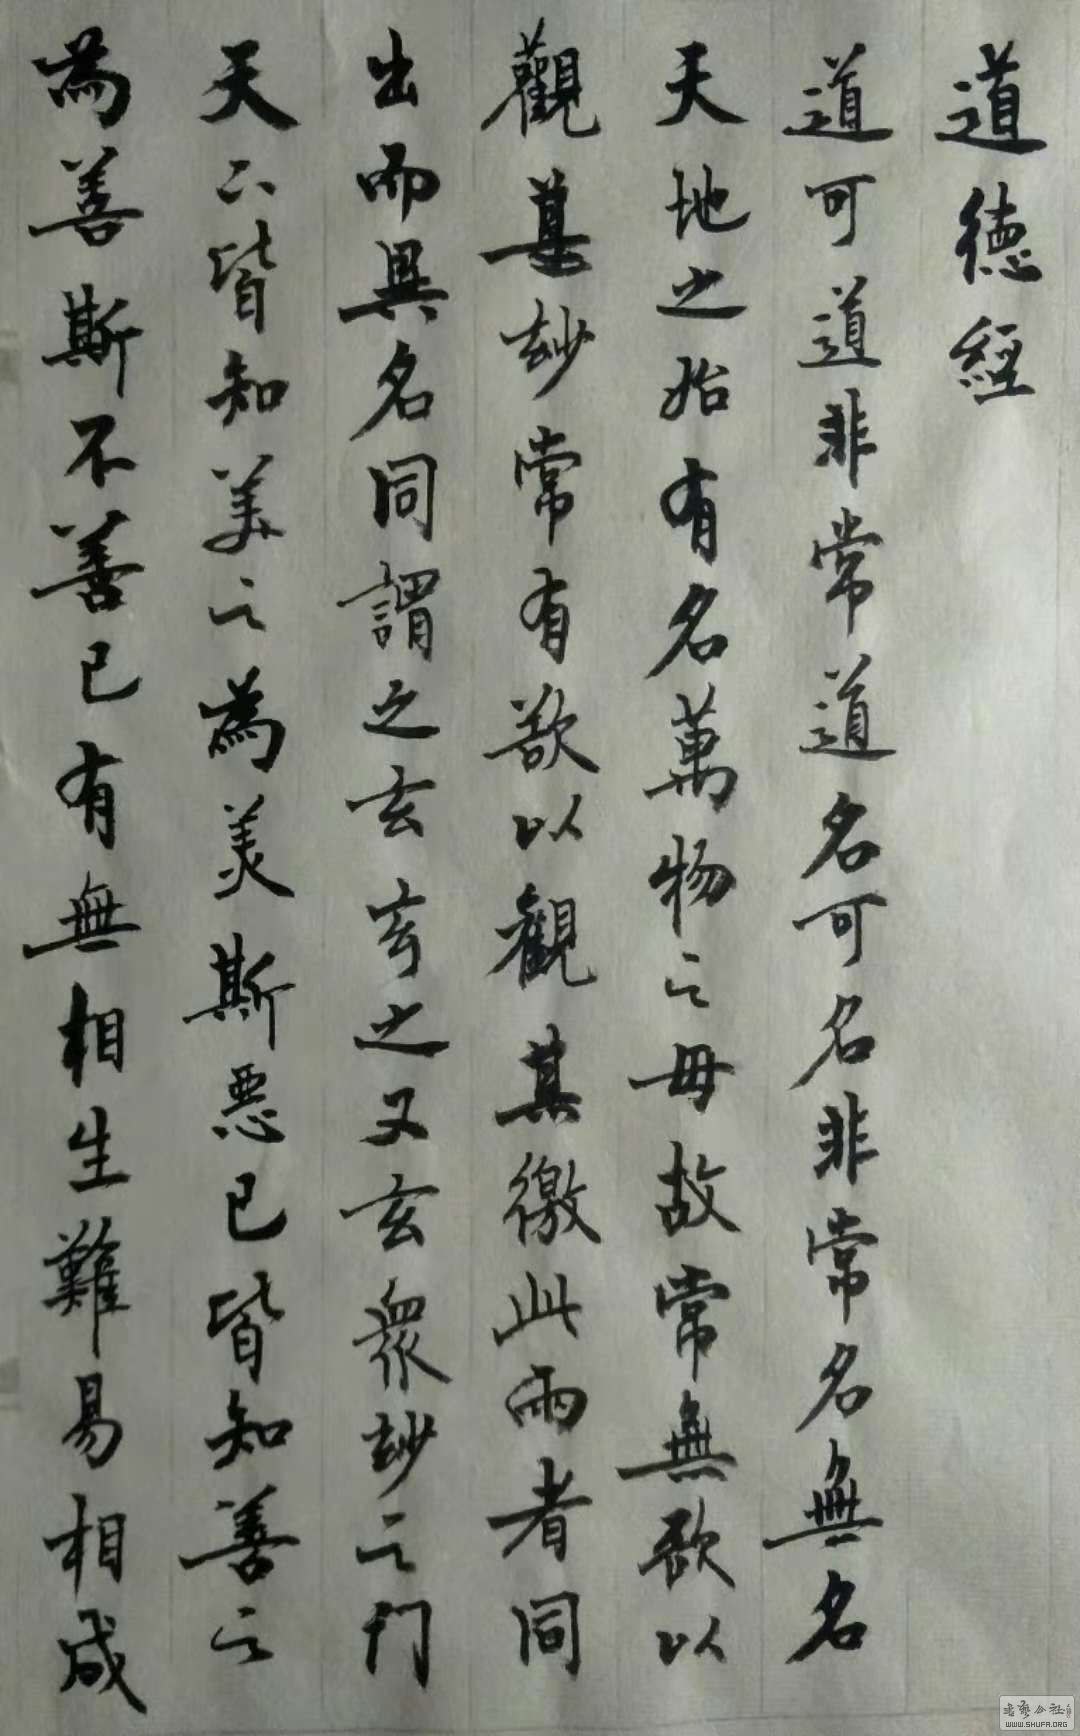 道德經
道可道非常道名可名非常名無名
天地之始有名萬物之母故常無欲以
觀其妙常有欲以觀其徼此兩者同
出而異名同謂之玄玄之又玄衆妙之門
天下皆知美之為美斯惡已皆知善之
為善斯不善已有無相生難易相成
书艺公社
WWW.SHUFA.ORG